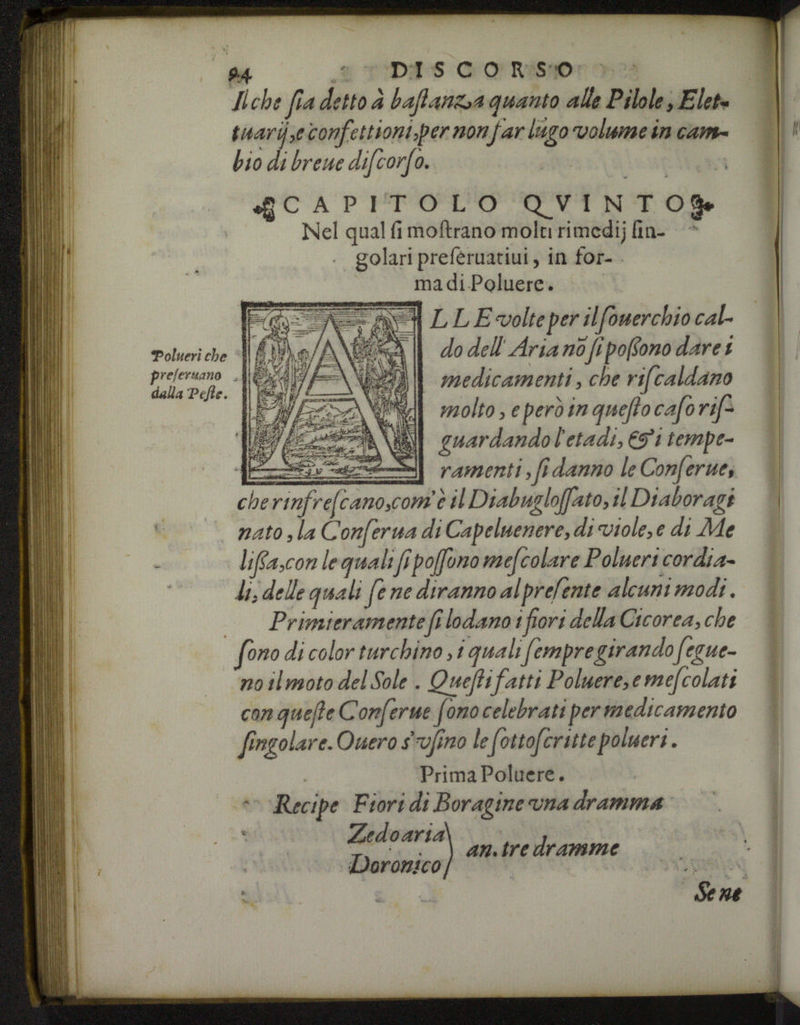 94 DISCORSO
Il che ſia detto à baſtanza quanto alle Pilole, Elet-
tuarij, e confettioni, per non far lũgo volume in cam-
bio di breue diſcorſo.
CAPITOLO QVINTO
Nel qual ſi moſtrano molti rimedij ſin-
golari preſeruatiui, in for-
ma di Poluere.
Polueri che
preſeruano
dalla Peſte.
ALLE volte per il ſouerchio cal-
do dell'Aria nõ ſi poſſono dare i
medicamenti, che riſcaldano
molto, e però in queſto caſo riſ-
guardando l'etadi, & i tempe-
ramenti, ſi danno le Conſerue,
che rinfreſcano, com'è il Diabugloſſato, il Diaboragi
nato, la Conſerua di Capeluenere, di viole, e di Me
liſſa, con le quali ſi poſſono meſcolare Polueri cordia-
li; delle quali ſe ne diranno al preſente alcuni modi.
Primieramente ſi lodano i fiori della Cicorea, che
ſono di color turchino, i quali ſempre girando ſegue-
no il moto del Sole. Queſti fatti Poluere, e meſcolati
con queſte Conſerue ſono celebrati per medicamento
ſingolare. Ouero s'vſino le ſottoſcritte polueri.
Prima Poluere.
Recipe Fiori di Boragine vna dramma
Zedoaria
Doronico } an. tre dramme
Se ne